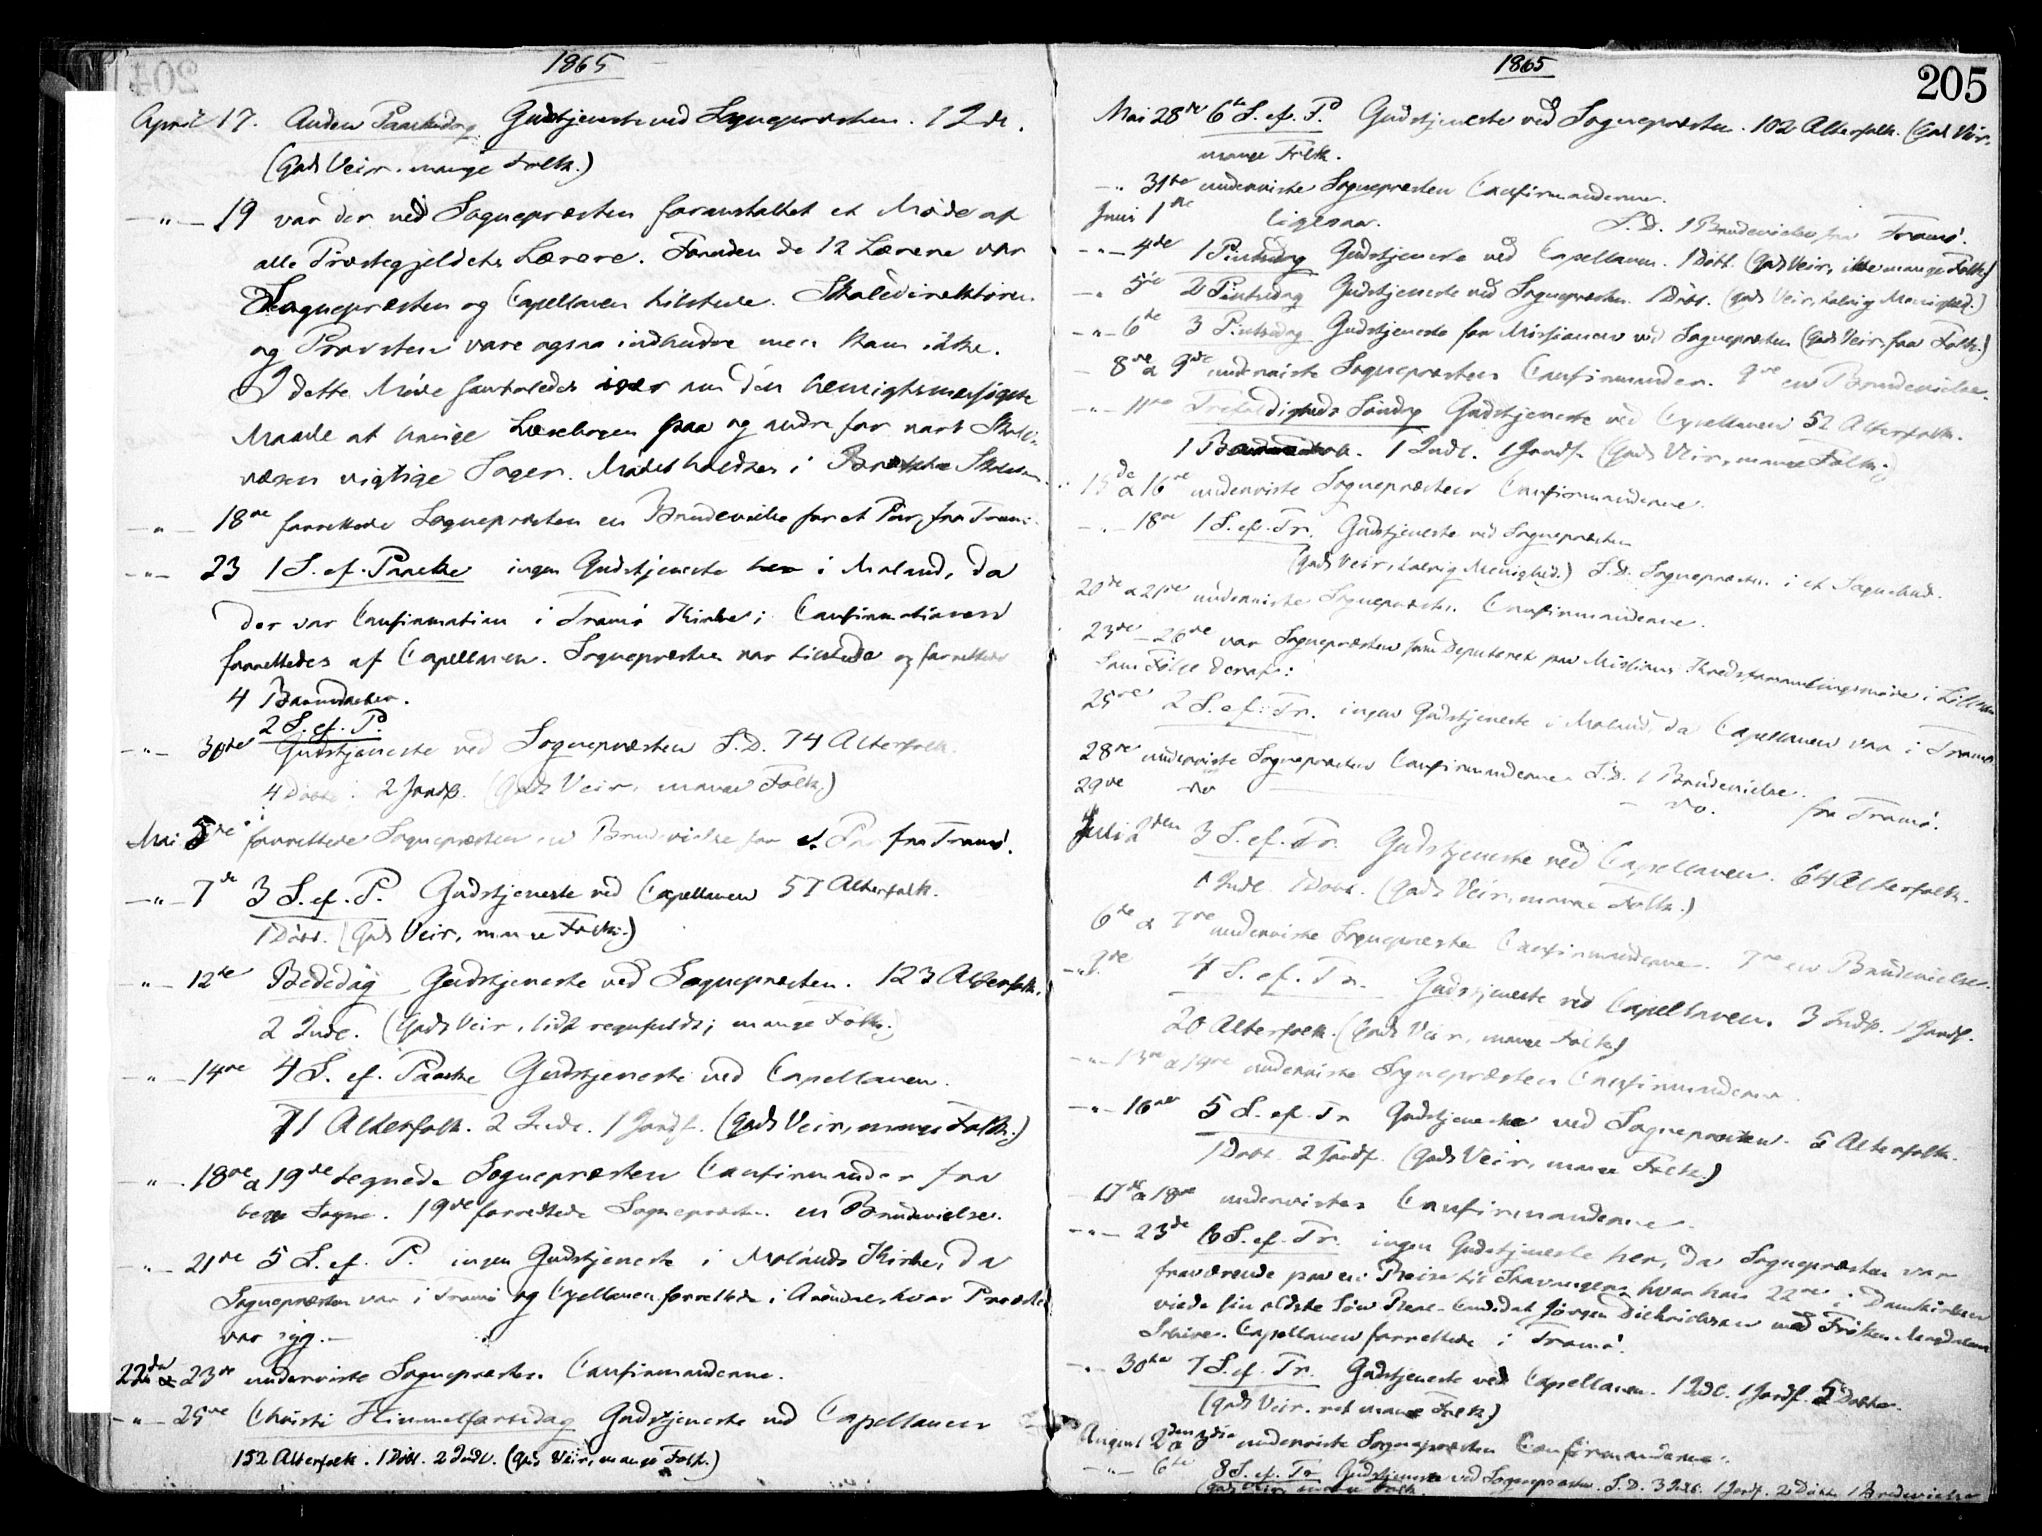 1865
April 17. Anden Paaskedag Gudstjeneste ved Sognepræsten. 1 Død.
(Gods Veir. mange Folk.)
—„— 19 var der ved Sognepræsten foranstaltet et Møde af
alle Præstegjeldets Lærere. Foruden de 12 Lærere var
Sognepræsten og Capellanen tilstede. Skoledirektøren
og Provsten vare ogsaa indbudne men kom ikke.
I dette Møde forhandledes især om den hensigtsmæssigste
Maade at bruge Læsebogen paa og andre for vort Skole-
væsen vigtige Sager. Mødet holdtes i Skolen
„ — 18de forrettede Sognepræsten en Brudevielse for et Par fra Tromø
—„— 23 1 S. ef. Paaske ingen Gudstjeneste her i Moland, da
der var Confirmation i Tromø Kirke; Confirmationen
forrettedes af Capellanen. Sognepræsten var tilstede og forrettede
4 Barnedaaber.
2 S. ef. P.
—„— 30te Gudstjeneste ved Sognepræsten S.D. 74 Alterfolk.
4 Døbte 2 Jordf. (Gods Veir, mange Folk)
Mai 5de forrettede Sognepræsten en Brudevielse for et Par fra Tromø.
—„— 7de 3 S. ef. P. Gudstjeneste ved Capellanen 57 Alterfolk.
1 Døbt. (Gods Veir, mange Folk.)
—„— 12te Bededag Gudstjeneste ved Sognepræsten. 123 Alterfolk.
2 Indl. (Gods Veir, lidt regnfuldt; mange Folk.)
—„— 14de 4 S. ef. Paaske Gudstjeneste ved Capellanen.
71 Alterfolk. 2 Indl. 1 Jordf. (Gods Veir, mange Folk.)
„ — 18de a 19de tegnede Sognepræsten Confirmander fra
begge Sogne. 19de forrettede Sognepræsten en Brudevielse.
—„— 21de 5 S. ef. P. ingen Gudstjeneste i Molands Kirke, da
Sognepræsten var i Tromø og Capellanen forrettede i Arendal, hvor Præsten
var syg.—
22de a 23de underviste Sognepræsten Confirmanderne.
—„— 25de Christi Himmelfartsdag Gudstjeneste ved Capellanen
152 Alterfolk. 1 Døbt. 2 Indl. (Gods Veir, mange Folk.)
1865
205
Mai 28de 6te S. ef. P. Gudstjeneste ved Sognepræsten. 102 Alterfolk. (Gods Veir,
mange Folk.
—„ 31te underviste Sognepræsten Confirmanderne.
Juni 1ste ligesaa. S.D. 1 Brudevielse fra Tromø.
—„— 4de 1 Pintsedag Gudstjeneste ved Capellanen. 1 Døbt. (Gods Veir, ikke mange Folk)
—„ 5te 2 Pintsedag Gudstjeneste ved Sognepræsten. 1 Døbt. (gods Veir, talrig Menighed.)
—„— 6te 3 Pintsedag Gudstjeneste for Missionen ved Sognepræsten (gods Veir, faa Folk.)
— 8de a 9de underviste Sognepræsten Confirmander. 9de en Brudevielse.
—„— 11te Trefoldigheds Søndag Gudstjeneste ved Capellanen 52 Alterfolk.
1 Indl. 1 Jordf. (Gods Veir, mange Folk.)
15de a 16de underviste Sognepræsten Confirmanderne.
—„— 18de 1 S. ef. Tr. Gudstjeneste ved Sognepræsten
(gods Veir, talrig Menighed.) S.D. Sognepræsten i et Sognebud.
20de a 21de underviste Sognepræsten Confirmanderne.
23de — 26de var Sognepræsten som Deputeret paa Missions Kredsforsamlingsmøde i
Som Følge deraf:
25de 2 S. ef. Tr. ingen Gudstjeneste i Moland, da Capellanen var i Tromø
28de underviste Sognepræsten Confirmanderne S.D. 1 Brudevielse.
29de do — do. fra Tromø.
Juli 2den 3 S. ef. Tr. Gudstjeneste ved Capellanen. 64 Alterfolk.
1 Indl. 1 Døbt. (gods Veir, mange Folk.)
6te a 7de underviste Sognepræsten Confirmanderne. 7de en Brudevielse.
—„ 9de 4 S. ef. Tr. Gudstjeneste ved Capellanen. 3 Indl. 1 Jordf.
20 Alterfolk. (Gods Veir, mange Folk)
—„— 13de a 14de underviste Sognepræsten Confirmanderne.
—„— 16de 5 S. ef. Tr Gudstjeneste ved Sognepræsten. 5 Alterfolk.
1 Døbt. 2 Jordf. (Gods Veir, mange Folk.)
— 17de a 18de undervistes Confirmanderne.
—„— 23de 6 S. ef. Tr. ingen Gudstjeneste her, da Sognepræsten var
fraværende paa en Reise til Stavanger, hvor han 22de i Domkirken
viede sin ældste Søn Real-Candidat Jørgen Diderichsen med Frøken Magdalene
Capellanen forrettede i Tromø.
—„— 30te 7 S. ef. Tr. Gudstjeneste ved Capellanen. 1 Indl. 1 Jordf. 5 Døbte.
(gods Veir, mange Folk)
August 2den a 3die underviste Sognepræsten Confirmanderne.
—„— 6te 8 S. ef. Tr Gudstjeneste ved Sognepræsten. S.D. 3 Indl. 1 Jordf. 2 Døbte 1 Brudevielse
(gods Veir mange Folk.